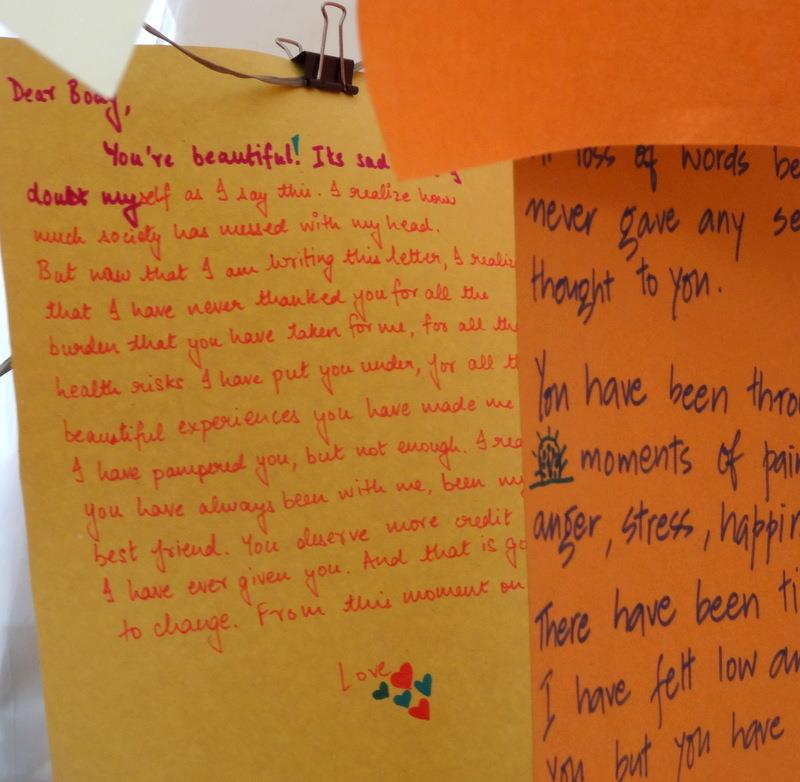 Dear Body,
You're beautiful! Its sad
doubt myself as I say this. I realize how
much society has messed with my head.
But now that I am writing this letter, I realiz
that I have never thanked you for all the
burden that you have taken for me, for all the
health risks I have put you under, for all t
beautiful experiences you have made me
I have pampered you, but not enough. I rea
you have always been with me, been my
best friend. You deserve more credit
I have ever given you. And that is go
to change. From this moment on
Love
loss of words be
never gave any se
thought to you.
You have been throu
moments of pain
anger, stress, happin
There have been ti
I have felt low an
you but you have